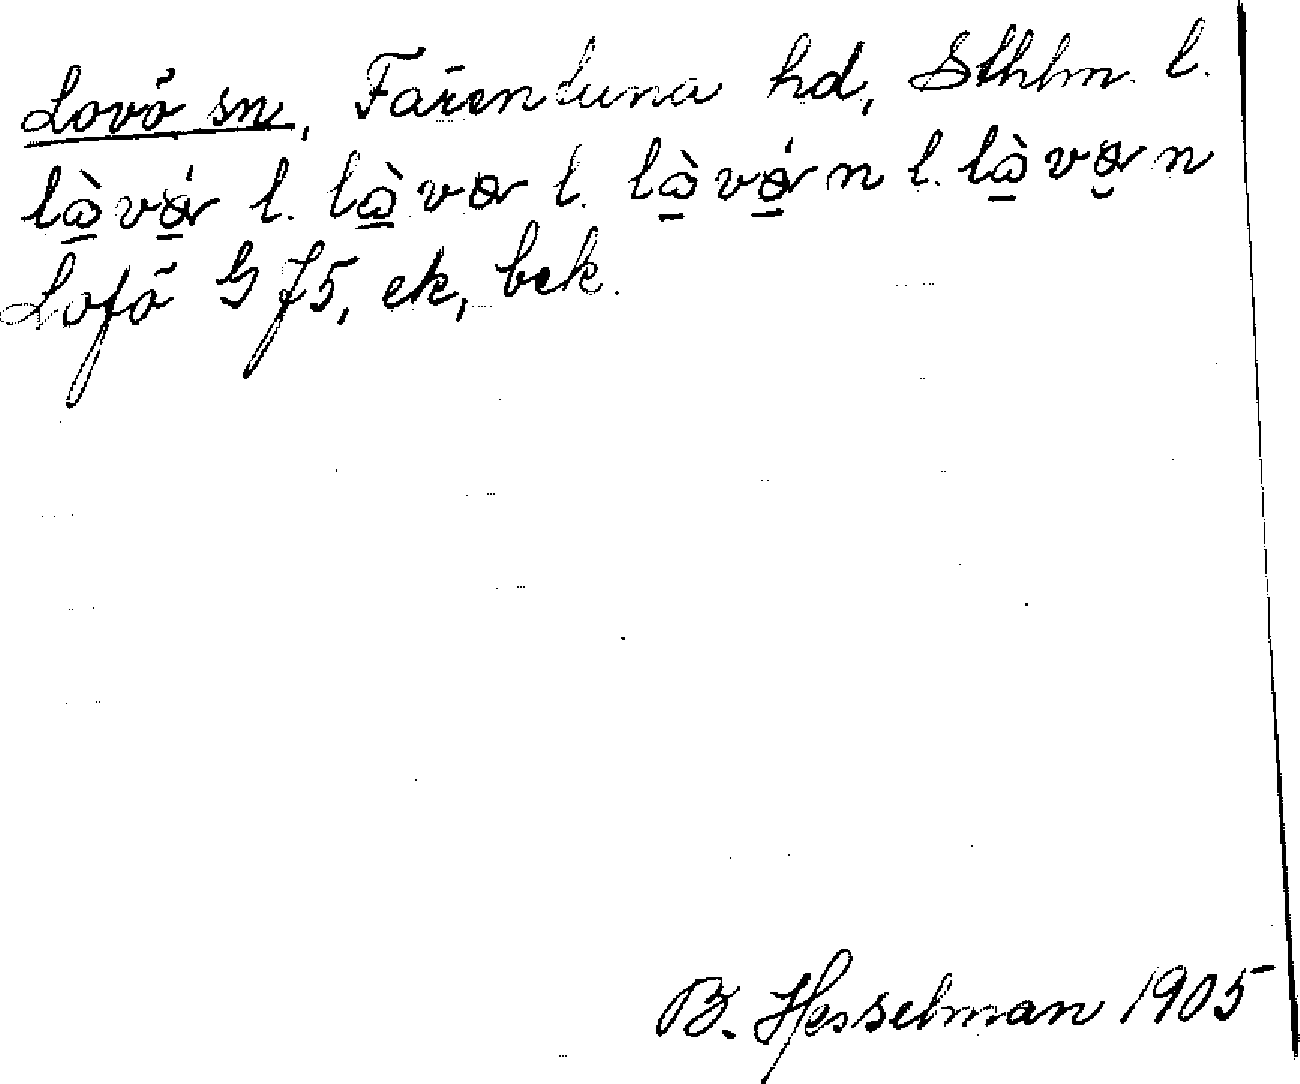 Lovö sn, Färentuna hd, Sthlm. l.
lò̱vǿ̱r l. lò̱vør l. lò̱vǿ̱rn l. lò̱vø̱rn
Lofö G J5, ek, bek.
B. Hesselman 1905